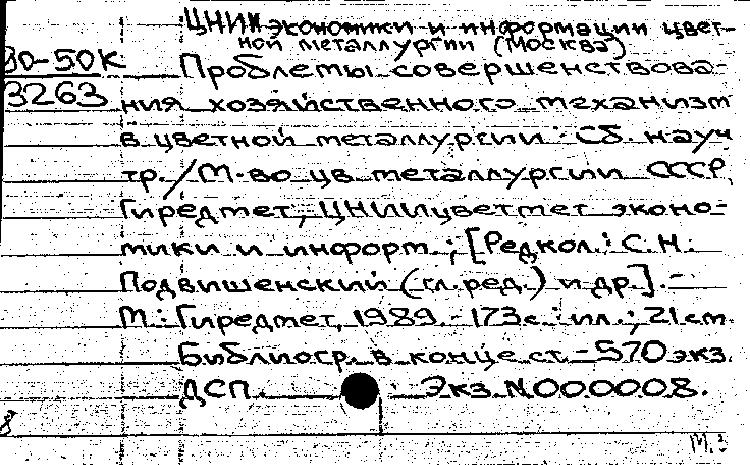 ЦНИИ экономики и информации цвет-
ной металлургии (Москва)
80-50К Проблемы совершенствова-
3263 ния хозяйственного механизм
в цветной металлургии : Сб. науч
тр. / М-во цв. металлургии СССР,
Гиредмет, ЦНИИцветмет эконо-
мики и информ. ; [Редкол.: С.Н.
Подвишенский (гл. ред.) и др.]. -
М.: Гиредмет, 1989. - 173 с. : ил. ; 21 см.
Библиогр. в конце ст. - 570 экз.
ДСП. Экз. N 000008.